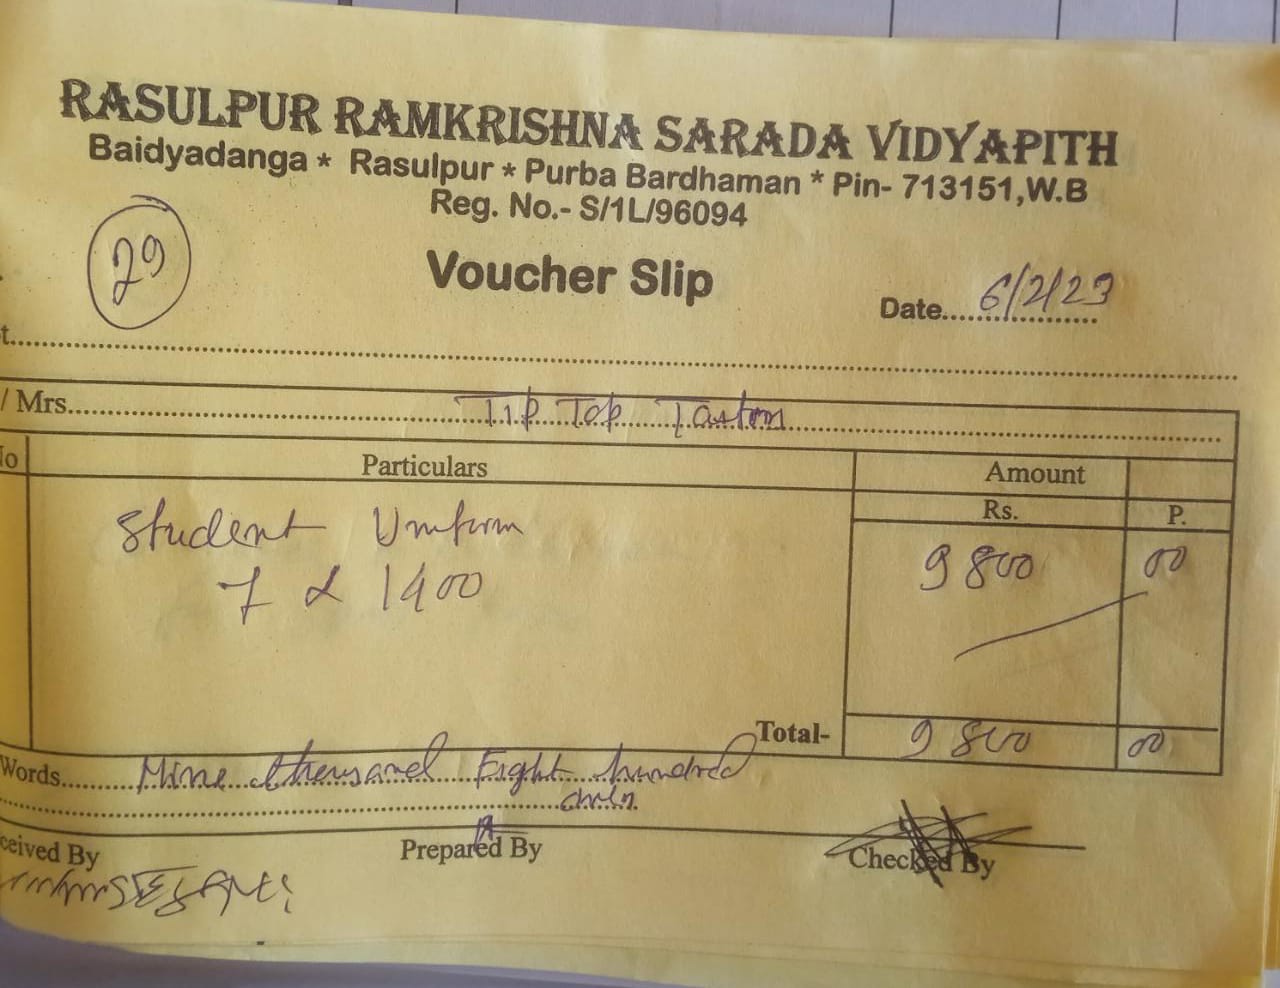 RASULPUR RAMKRISHNA SARADA VIDYAPITH
Baidyadanga * Rasulpur * Purba Bardhaman * Pin- 713151,W.B
Reg. No.- S/1L/96094
29
Voucher Slip
Date..... 6/2/23
t..............
/ Mrs........ Tip Top
No Particulars Amount
Rs. P.
Student Uniform 9800 00
7 x 1400
Total- 9800 00
Words...... Nine thousand Eight hundred
only.
ceived By Prepared By Checked By